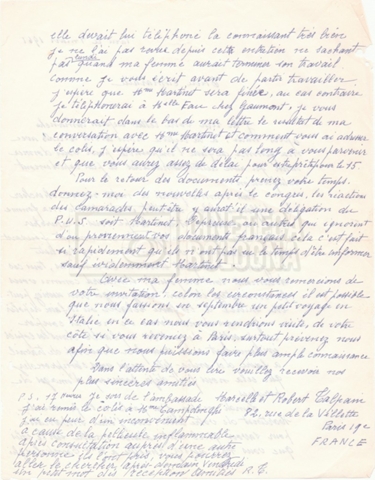 elle devait lui téléphoné la connaissant très bien
je ne l'ai pas revue depuis cette entretien ne sachant
pas quand ma femme aurait terminée son travail
comme je vous écrit avant de partir travailler
j'espère que Mme Martinet sera , au cas contraire
je téléphonerai à Melle Faure chez Gaumont, je vous
donnerait dans le bas de ma lettre le resultat de ma
conversation avec Mme Martinet et comment vous ai adresser
le colis, j'espère qu'il ne sera pas long à vous parvenir
et que vous aurez assez de délai pour être prêt pour le 15
Pour le retour des documents prenez votre temps.
donnez-moi des nouvelles après le congrès, les réaction
des camarades, peut être y aurait il une délégation du
P.U.S soit Martinet Depreux, ou autres que ignorent
d'où proviennent vos document français cela c'est fait
si rapidement qu'ils n'ont pas eu le temps d'être informer
sauf Martinet
Avec ma femme nous vous remercions de
votre invitation, selon les circonstances il est possible
que nous fassions en septembre un petit voyage en
Italie en ce cas nous vous rendrions visite, de votre
côté si vous revenez à Paris, surtout prevenez nous
afin que nous puissions faire plus ample connaissance
Dans l'attente de vous lire veuillez recevoir nos
plus sincères amitiés
Marcelle et Robert
82, rue de la Villette
Paris 19e
FRANCE
P.S. 17 heures je sors de l'ambassade
j'ai remis le colis à Mme Campolonghi
j'ai eu peur d'un inconvenient
à cause de la pellicule inflammable
après consultation auprès d'une autre
personne ils l'ont pris, vous pourrez
aller le chercher après-demain Vendredi
un petit mot dès reception amitiés R.T.